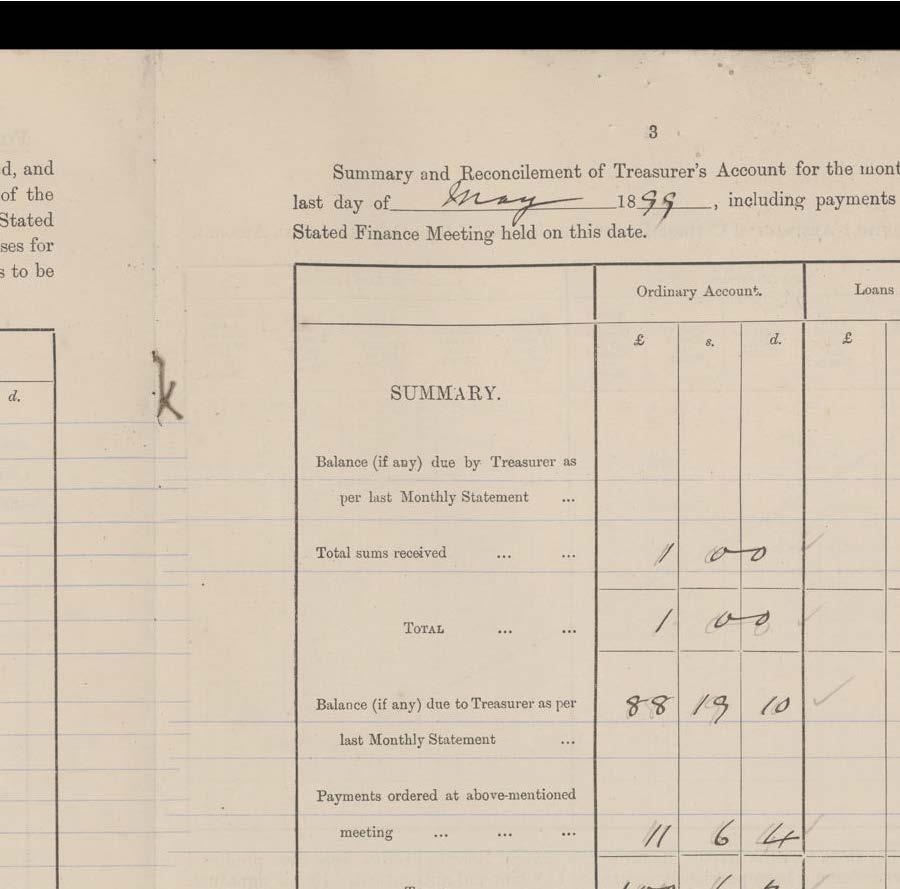 3
d, and
of the
Stated
ses for
s to be
d.
Summary and Reconcilement of Treasurer's Account for the mont
last day of May 1899, including payments
Stated Finance Meeting held on this date.
Ordinary Account. Loans
£ s. d. £
SUMMARY.
Balance (if any) due by Treasurer as
per last Monthly Statement ...
Total sums received ... ... 1 0 0
TOTAL ... ... 1 0 0
Balance (if any) due to Treasurer as per 88 19 10
last Monthly Statement ...
Payments ordered at above-mentioned
meeting ... ... ... 11 6 4